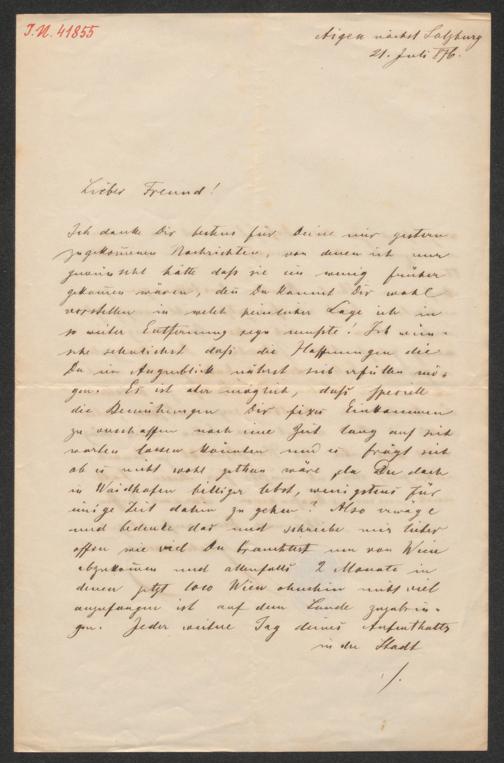 I.N. 41855
Aigen nächst Salzburg
21. Juli 876.
Lieber Freund!
Ich danke Dir bestens für Deine mir gestern
zugekom̅enen Nachrichten, von denen ich nur
gewünscht hätte daß sie ein wenig früher
gekom̅en wären, den̅ Du kannst Dir wohl
vorstellen in welch peinlicher Lage ich in
so weiter Entfernung seyn mußte! Ich wün-
sche sehnlichst daß die Hoffnungen die
Du im Augenblick nährst sich erfüllen mö-
gen. Es ist aber möglich, daß speciell
die Bemühungen Dir fixes Einkommen
zu verschaffen noch eine Zeit lang auf sich
warten lassen könnten und es frägt sich
ob es nicht wohl gethan wäre, da Du doch
in Waidhofen billiger lebst, wenigstens für
einige Zeit dahin zu gehen? Also erwäge
und bedenke das und schreibe mir lieber
offen wie viel Du brauchtest um von Wien
abzukom̅en und allenfalls 2 Monate in
denen jetzt in Wien ohnehin nicht viel
anzufangen ist auf dem Lande zuzubrin-
gen. Jeder weitere Tag deines Aufenthalts
in der Stadt
./.